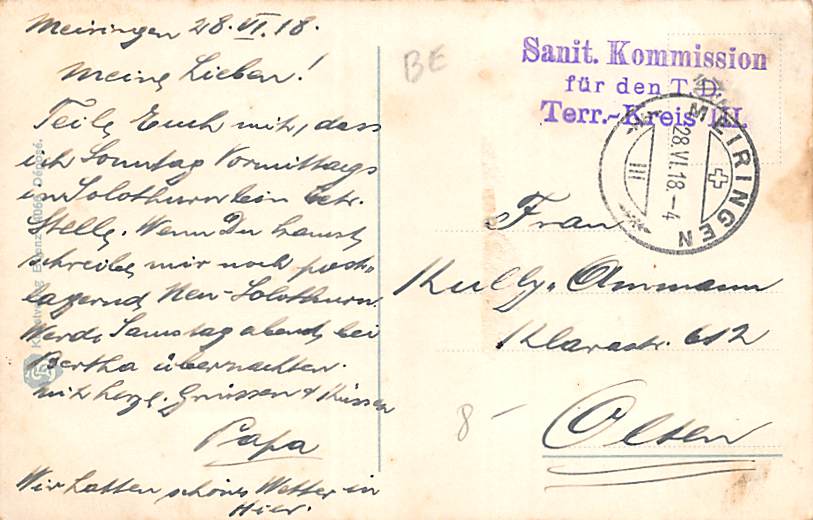 Meiringen 28.VI.18.
Meine Lieben!
Teile Euch mit, dass
ich Sonntag Vormittags
in Solothurn bin betr.
Stelle. Wenn Du kannst
schreibe mir noch post-
lagernd Neu-Solothurn.
Werde Samstag abend bei
Bertha übernachten.
mit herzl. Grüssen & Küssen
Papa
Wir hatten schönes Wetter in
Hier.
BE
Sanit. Kommission
für den T.D.
Terr.-Kreis III.
MEIRINGEN
28.VI.18.-4
III
Frau
Kully-Ammann
Klarastr. 612
Olten
8-